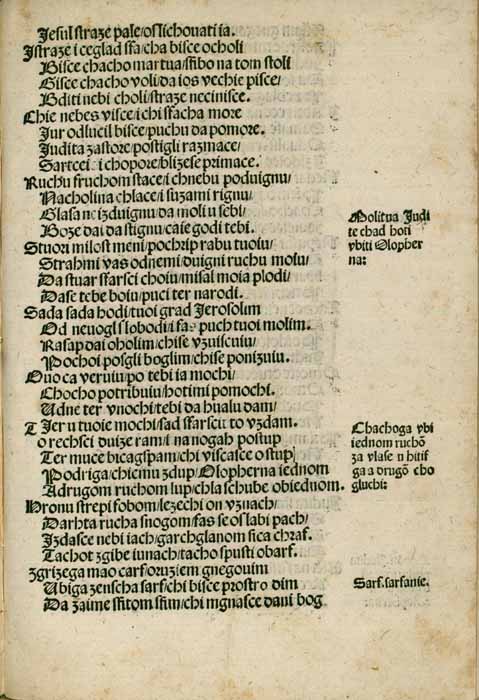 Jesul straze pale/oslichouati ia.
Jstraze i ceglad sfa/cha bisce ocholi
Bisce chacho martua/sfibo na tom stoli
Gisce chacho voli/da ios vechie pisce/
Bditi nebi choli/straze necinisce.
Chie nebes visce/ichi sfacha more
Jur odlucil bisce/puchu da pomore.
Judita zastore/postigli razmace/
Sartcei i chopore/blizese primace.
Ruchu fruchom stace/i chnebu poduignu/
Nacholina chlace/i suzami rignu/
Glasa ne izduignu/da moli u sebi/
Boze dai da stignu/caie godi tebi.
Stuori milost meni/pochrip rabu tuoiu/
Strahmi vas odnemi/duigni ruchu molu/
Da stuar sfarsci choiu/misal moia plodi/
Dase tebe boiu/puci ter narodi.
Sada sada hodi/tuoi grad Jerosolim
Od neuogl slobodi/i puch tuoi molim.
Rasap dai oholim/chise vzuiscuiu/
Pochoi posgli boglim/chise ponizuiu.
Ouo ca veruiu/po tebi ia mochi/
Chocho potribuiu/hotimi pomochi.
Udne ter vnochi/tebi da hualu dam/
Jer u tuoie mochi/sad sfarsciu to vzdam.
To rechsci duize ram/i na nogah postup
Ter muce bicagspam/chi viscaisce ostup
Podriga/chicmu zdup/Olopherna iednom
Adrugom ruchom lup/chla schube obieduom.
Hronu strepi sobom/lezechi on vznach/
Darhta rucha snogom/fas se oslabi pach/
Jzdasce nebi iach/garchglanom sica chraf.
Tachot zgibe iunach/tacho spusti obarf.
Zgrizega mao carf/oruziem gnegouim
Ubiga zenscha sarf/chi bisce prostro dim
Da zaime sfitom sfim/chi mgnasce dani bog
Molitua Judi
te chad hoti
vbiti Olopher
na:
Chachoga vbi
iednom ruchõ
za vlase u hitif
ga a drugõ cbo
gluchi:
Sarf. sarfanie.